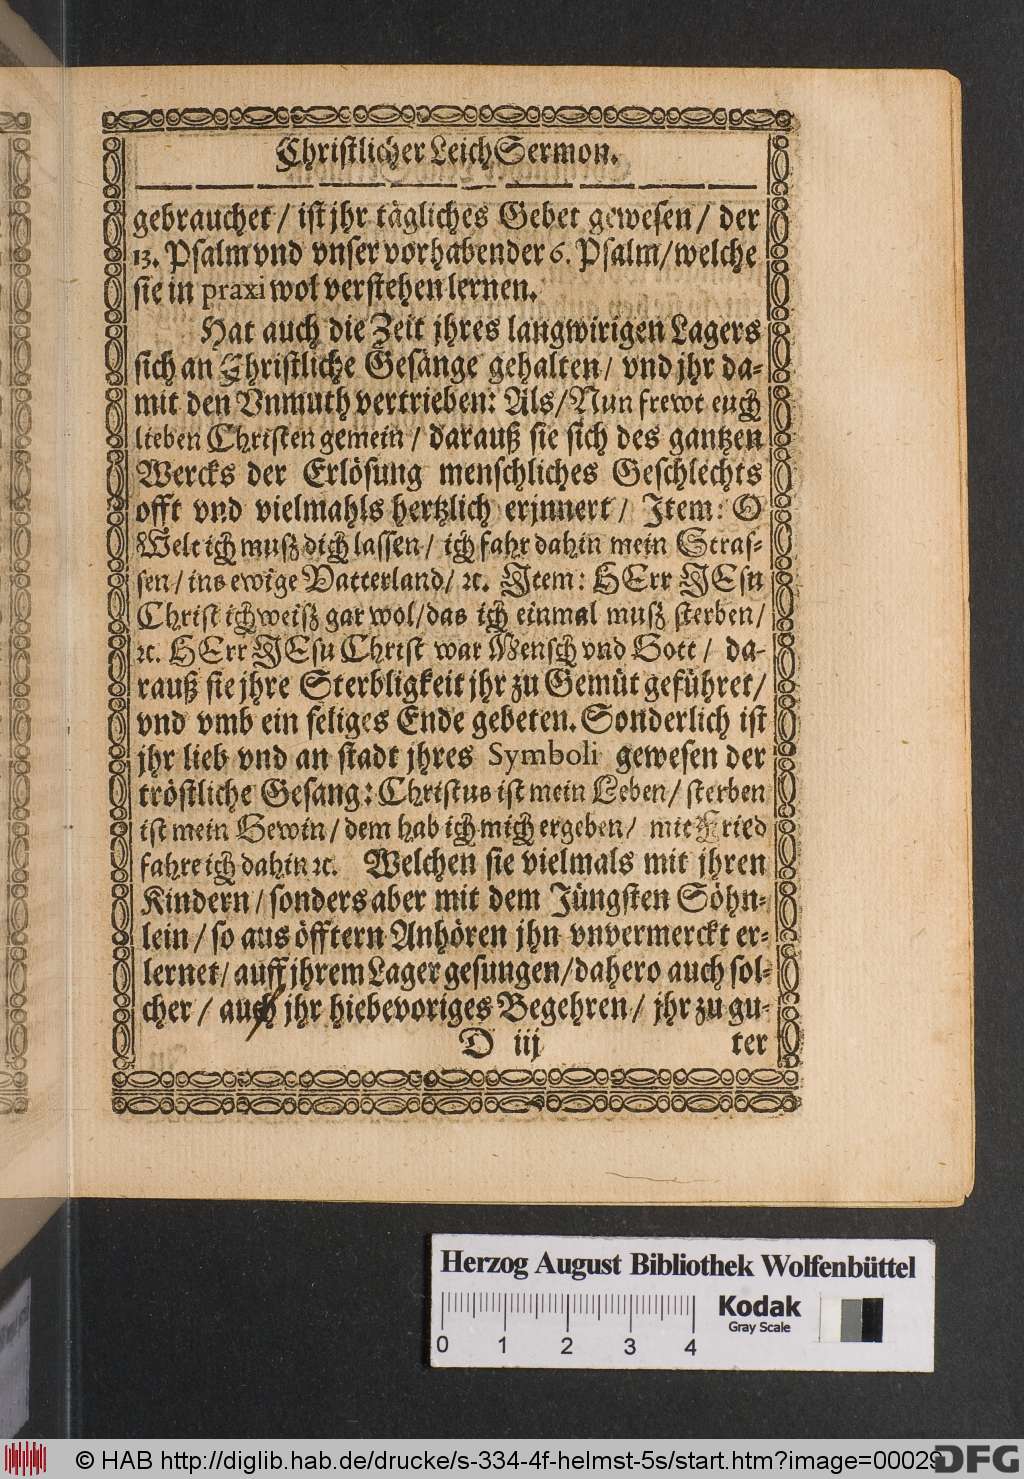 Christlicher LeichSermon.
gebrauchet / ist jhr tägliches Gebet gewesen / der
13. Psalm vnd vnser vorhabender 6. Psalm / welche
sie in praxi wol verstehen lernen.
Hat auch die Zeit jhres langwirigen Lagers
sich an Christliche Gesänge gehalten / vnd jhr da-
mit den Vnmuth vertrieben: Als / Nun frewt euch
lieben Christen gemein / darauß sie sich des gantzen
Wercks der Erlösung menschliches Geschlechts
offt vnd vielmahls hertzlich erjnnert / Item: O
Welt ich muß dich lassen / ich fahr dahin mein Stras-
sen / ins ewige Vatterland / ꝛc. Item: HErr JEsu
Christ ich weiß gar wol / das ich einmal muß sterben /
ꝛc. HErr JEsu Christ war Mensch vnd Gott / da-
rauß sie jhre Sterbligkeit jhr zu Gemüt geführet /
vnd vmb ein seliges Ende gebeten. Sonderlich ist
jhr lieb vnd an stadt jhres Symboli gewesen der
tröstliche Gesang: Christus ist mein Leben / sterben
ist mein Gewin / dem hab ich mich ergeben / mit Fried
fahre ich dahin ꝛc. Welchen sie vielmals mit jhren
Kindern / sonders aber mit dem Jüngsten Söhn-
lein / so aus öfftern Anhören jhn vnvermerckt er-
lernet / auff jhrem Lager gesungen / dahero auch sol-
cher / auch jhr hiebevoriges Begehren / jhr zu gu-
D iij ter
Herzog August Bibliothek Wolfenbüttel
Kodak
Gray Scale
0 1 2 3 4
© HAB http://diglib.hab.de/drucke/s-334-4f-helmst-5s/start.htm?image=00029
DFG